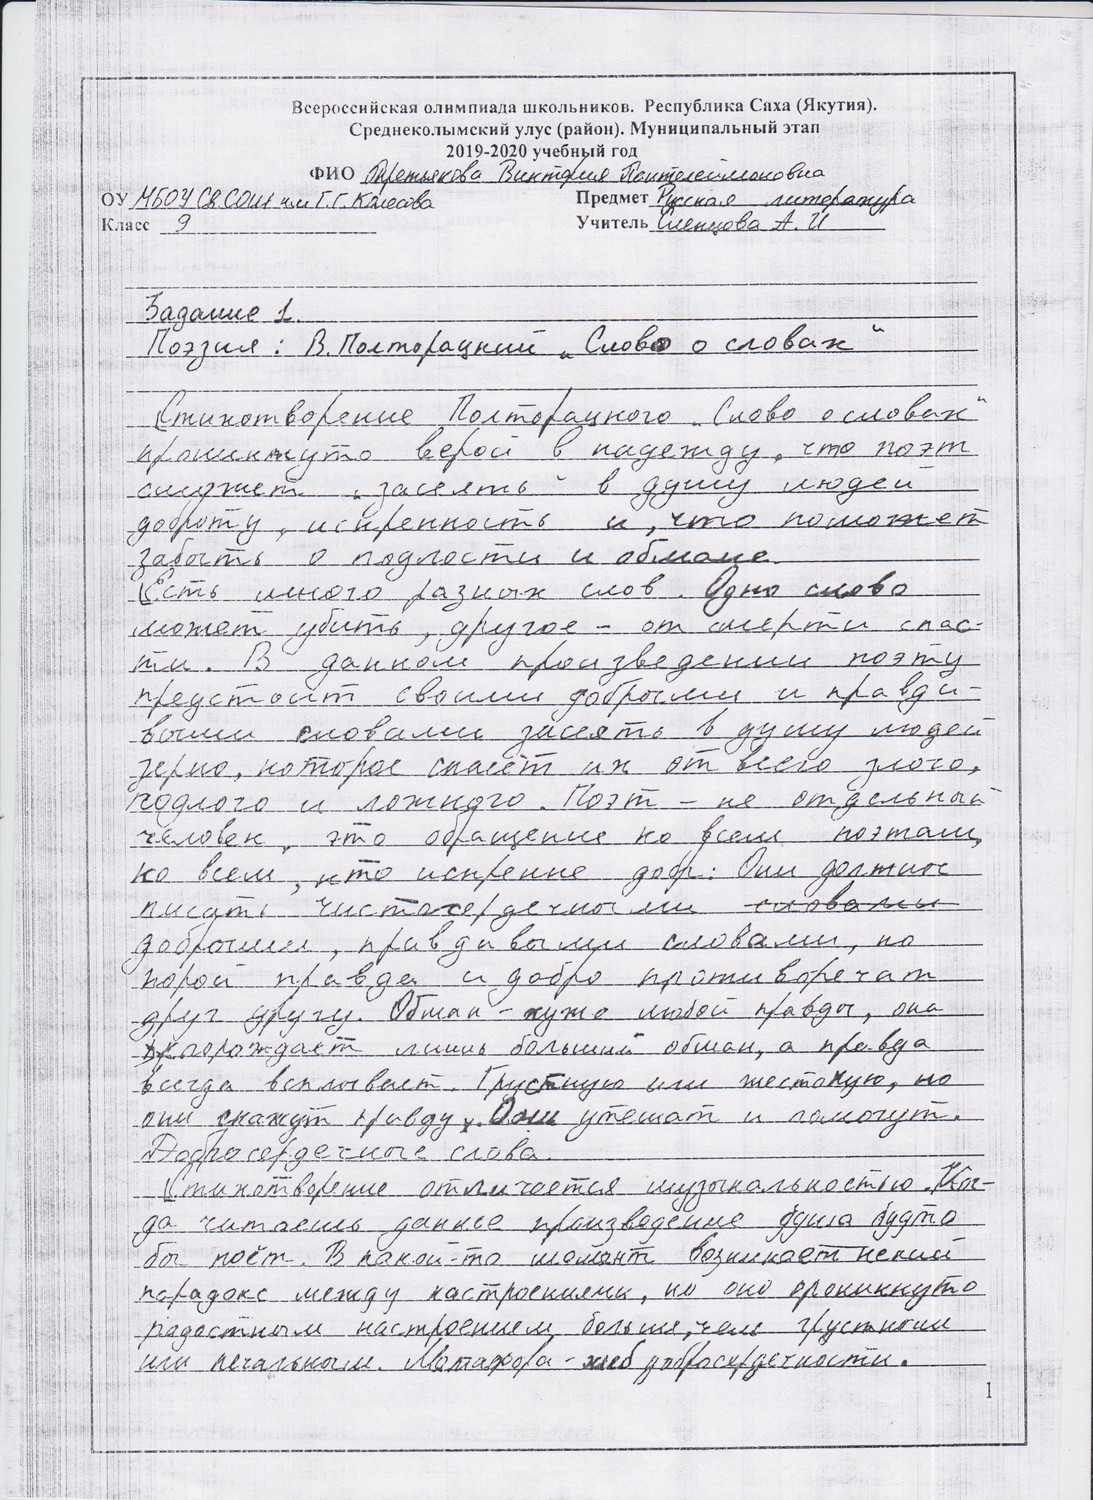 Всероссийская олимпиада школьников. Республика Саха (Якутия).
Среднеколымский улус (район). Муниципальный этап
2019-2020 учебный год
ФИО Третьякова Виктория Пантелеймоновна
ОУ МБОУ СВ СОШ им Г.Г. Колесова Предмет Русская литература
Класс 9 Учитель Слепцова А. И
Задание 1.
Поэзия: В. Полторацкий „Слово о словах“
Стихотворение Полторацкого „Слово о словах“
проникнуто верой в надежду, что поэт
сможет „засеять“ в душу людей
доброту, искренность и, что поможет
забыть о подлости и обмане.
Есть много разных слов. Одно слово
может убить, другое – от смерти спас-
ти. В данном произведении поэту
предстоит своими добрыми и правди-
выми словами засеять в душу людей
зерно, которое спасёт их от всего злого,
подлого и ложного. Поэт – не отдельный
человек, это обращение ко всем поэтам,
ко всем, кто искренне добр. Они должны
писать чистосердечными словами
добрыми, правдивыми словами, но
порой правда и добро противоречат
друг другу. Обман – хуже любой правды, она
порождает лишь больший обман, а правда
всегда всплывает. Грустную или жестокую, но
они скажут правду. Они утешат и помогут.
Добросердечные слова.
Стихотворение отличается музыкальностью. Ког-
да читаешь данное произведение душа будто
бы поёт. В какой-то момент возникает некий
парадокс между настроениями, но оно проникнуто
радостным настроением больше, чем грустным
или печальным. Метафора – хлеб добросердечности.
1